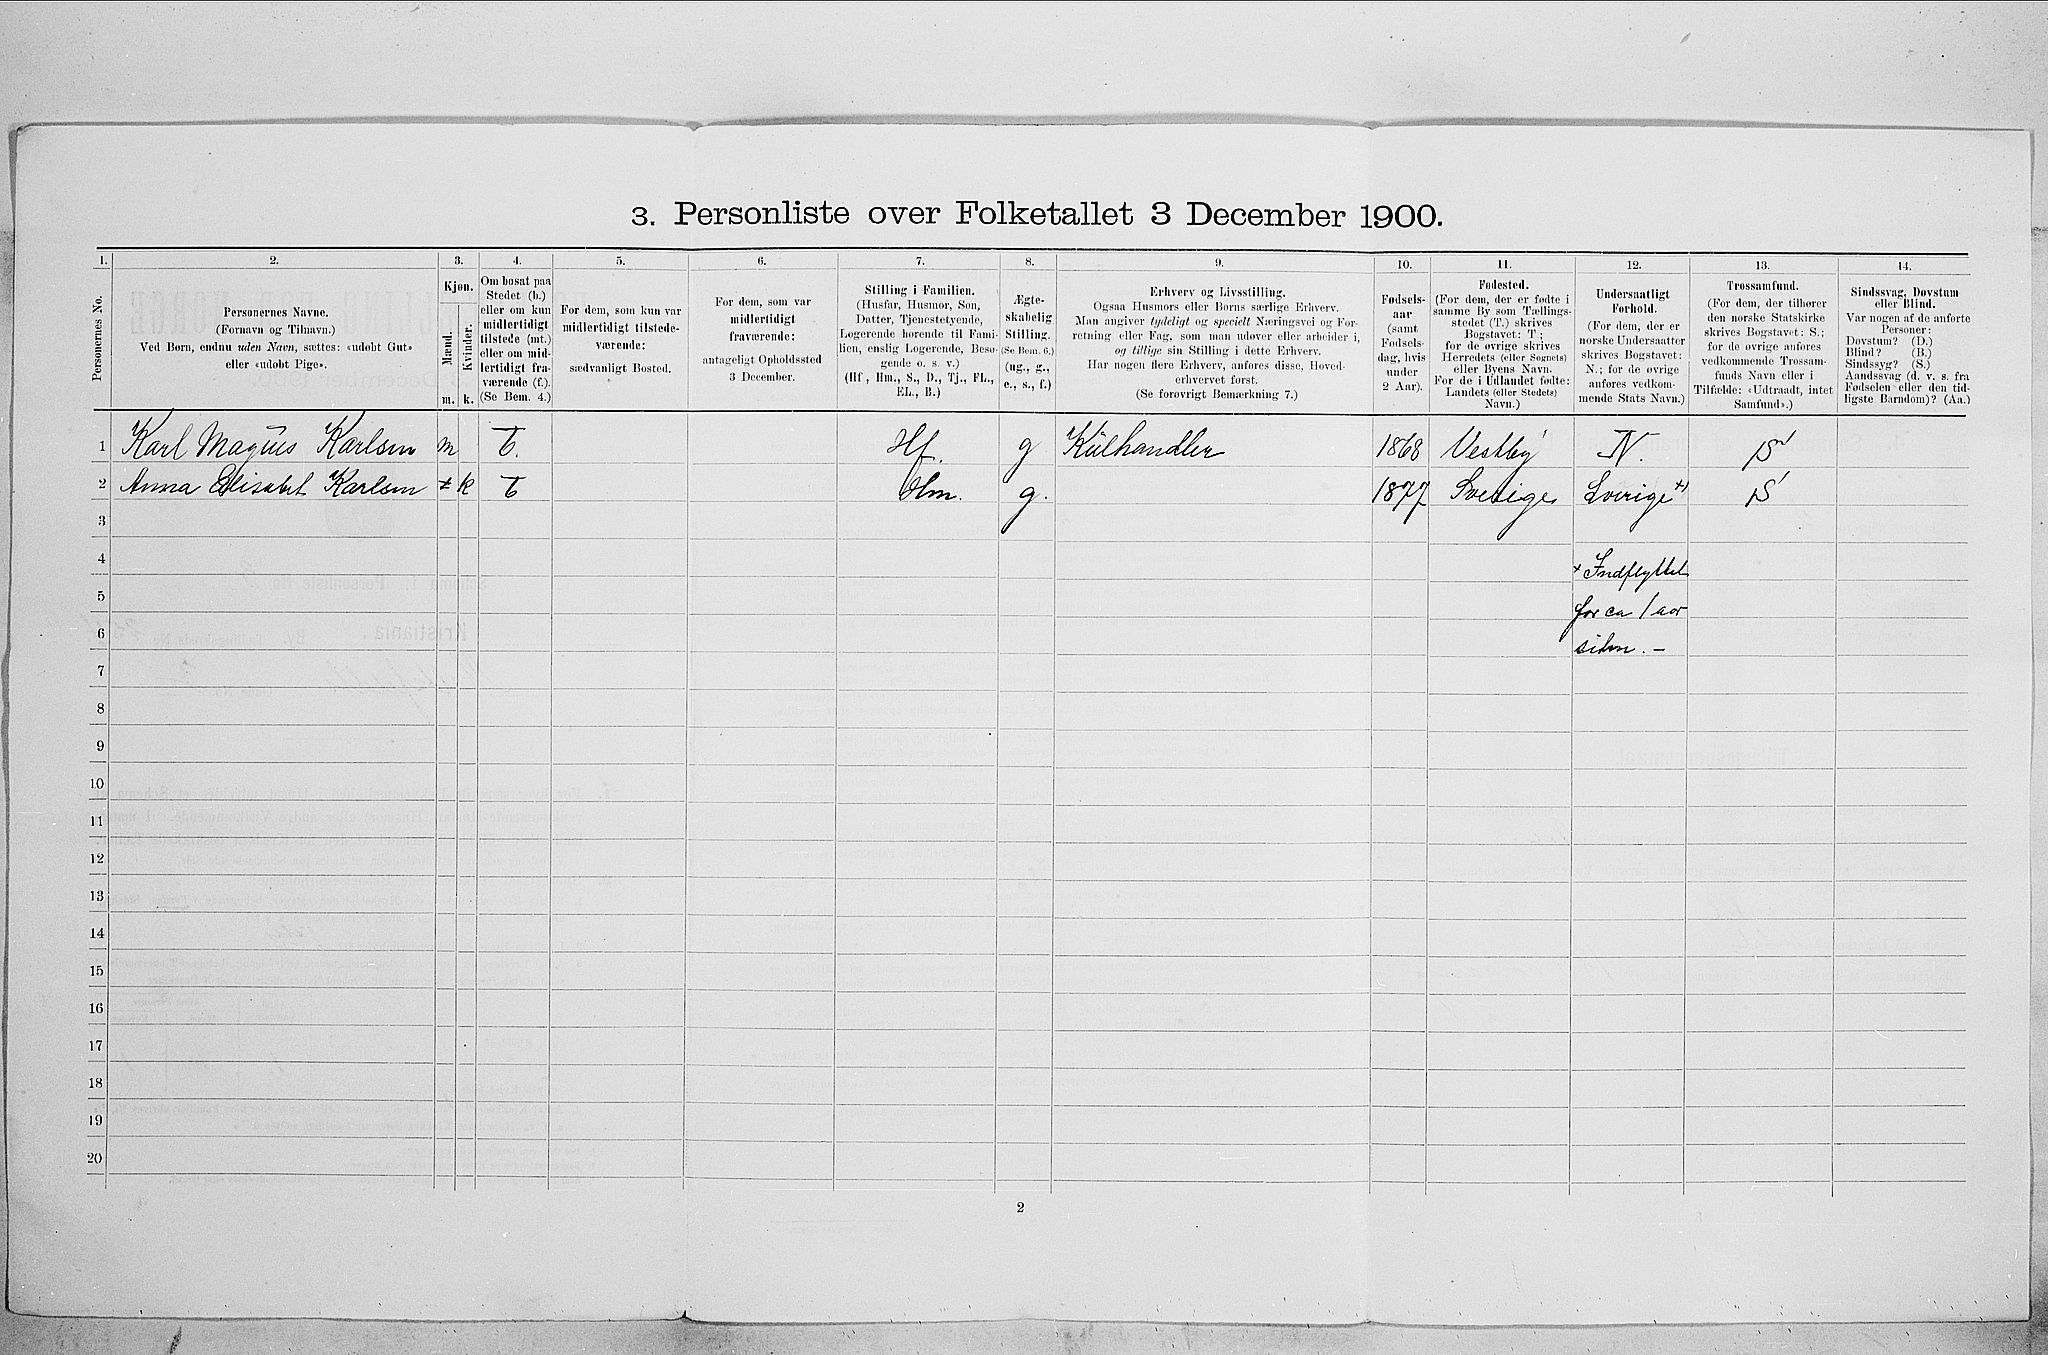 3. Personliste over Folketallet 3 December 1900.
1. 2. 3. 4. 5. 6. 7. 8. 9. 10. 11. 12. 13. 14.
Personernes No.
Personernes Navne.
(Fornavn og Tilnavn.)
Ved Børn, endnu uden Navn, sættes: «udøbt Gut»
eller «udøbt Pige».
Kjøn.
Mænd.
Kvinder.
m. k.
Om bosat paa
Stedet (b.)
eller om kun
midlertidigt
tilstede (mt.)
eller om mid-
lertidigt fra-
værende (f.).
(Se Bem. 4.)
For dem, som kun var
midlertidigt tilstede-
værende:
sædvanligt Bosted.
For dem, som var
midlertidigt
fraværende:
antageligt Opholdssted
3 December.
Stilling i Familien.
(Husfar, Husmor, Søn,
Datter, Tjenestetyende,
Logerende hørende til Fami-
lien, enslig Logerende, Besø-
gende o. s. v.)
(Hf., Hm., S., D., Tj., FL.,
EL., B.)
Ægte-
skabelig
Stilling.
(Se Bem. 6.)
(ug., g.,
e., s., f.)
Erhverv og Livsstilling.
Ogsaa Husmors eller Børns særlige Erhverv.
Man angiver tydeligt og specielt Næringsvei og For-
retning eller Fag, som man udøver eller arbeider i,
og tillige sin Stilling i dette Erhverv.
Har nogen flere Erhverv, anføres disse, Hoved-
erhvervet først.
(Se forøvrigt Bemærkning 7.)
Fødsels-
aar
(samt
Fødsels-
dag, hvis
under
2 Aar).
Fødested.
(For dem, der er fødte i
samme By som Tællings-
stedet (T.) skrives
Bogstavet: T;
for de øvrige skrives
Herredets (eller Sognets)
eller Byens Navn.
For de i Udlandet fødte:
Landets (eller Stedets)
Navn.)
Undersaatligt
Forhold.
(For dem, der er
norske Undersaatter
skrives Bogstavet:
N.; for de øvrige
anføres vedkom-
mende Stats Navn.)
Trossamfund.
(For dem, der tilhører
den norske Statskirke
skrives Bogstavet: S.;
for de øvrige anføres
vedkommende Trossam-
funds Navn eller i
Tilfælde: «Udtraadt, intet
Samfund».)
Sindssvag, Døvstum
eller Blind.
Var nogen af de anførte
Personer:
Døvstum? (D.)
Blind? (B.)
Sindssyg? (S.)
Aandssvag (d. v. s. fra
Fødselen eller den tid-
ligste Barndom)? (Aa.)
1 Karl Magnus Karlsen m b. Hf. g Kulhandler 1868 Vestby N. S
2 Anna Elisabet Karlsen k b Hm. g. 1877 Sverige Sverige x) S
3
4 x Indflyttet
5 for ca 1 aar
6 siden. –
7
8
9
10
11
12
13
14
15
16
17
18
19
20
2